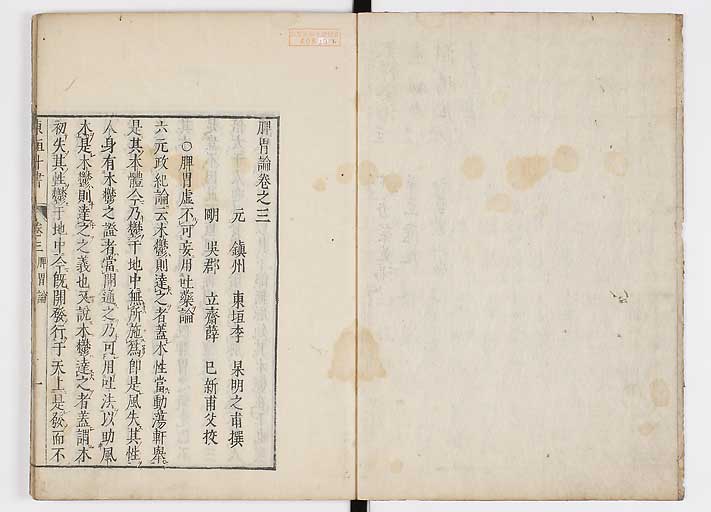 脾胃論卷之三
元　鎭州　東垣李　杲明之甫撰
明　吳郡　立齋薛　已新甫父挍
〇脾胃虛不可妄用吐藥論
六元政紀論云木鬱則達之者蓋木性當動蕩軒舉
是其本體今乃鬱于地中無所施爲卽是風失其性
人身有木鬱之證者當開通之乃可用吐法以助風
木是木鬱則達之之義也又說木鬱達之者蓋謂木
初失其性鬱于地中今旣開發行于天上是發而不
東垣十書　卷三脾胃論　一